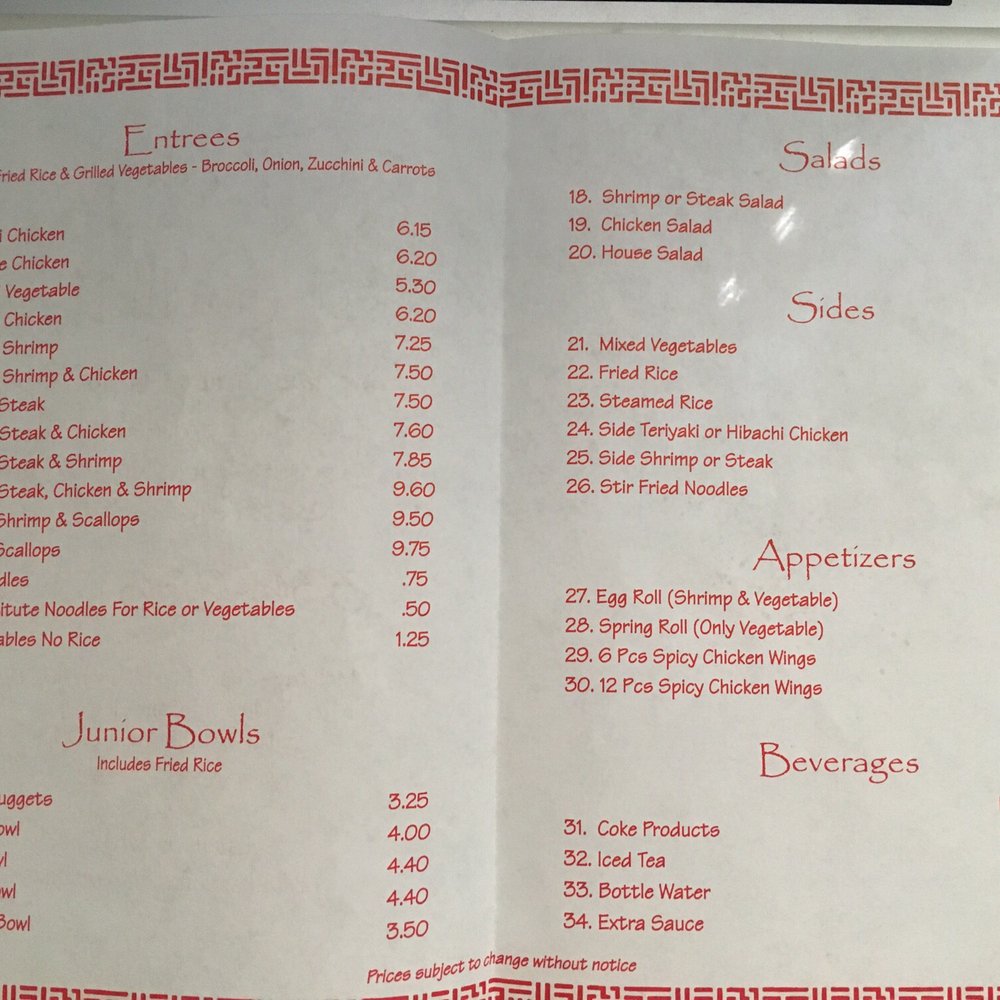 Entrees
Fried Rice & Grilled Vegetables - Broccoli, Onion, Zucchini & Carrots
Chicken 6.15
Chicken 6.20
Vegetable 5.30
Chicken 6.20
Shrimp 7.25
Shrimp & Chicken 7.50
Steak 7.50
Steak & Chicken 7.60
Steak & Shrimp 7.85
Steak, Chicken & Shrimp 9.60
Shrimp & Scallops 9.50
Scallops 9.75
dles .75
itute Noodles For Rice or Vegetables .50
ables No Rice 1.25
Junior Bowls
Includes Fried Rice
uggets 3.25
owl 4.00
wl 4.40
owl 4.40
Bowl 3.50
Salads
18. Shrimp or Steak Salad
19. Chicken Salad
20. House Salad
Sides
21. Mixed Vegetables
22. Fried Rice
23. Steamed Rice
24. Side Teriyaki or Hibachi Chicken
25. Side Shrimp or Steak
26. Stir Fried Noodles
Appetizers
27. Egg Roll (Shrimp & Vegetable)
28. Spring Roll (Only Vegetable)
29. 6 Pcs Spicy Chicken Wings
30. 12 Pcs Spicy Chicken Wings
Beverages
31. Coke Products
32. Iced Tea
33. Bottle Water
34. Extra Sauce
Prices subject to change without notice